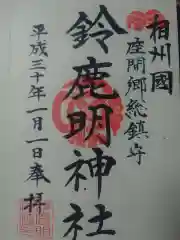 相州國
座間郷総鎮守
鈴鹿明神社
平成三十年一月一日奉拝